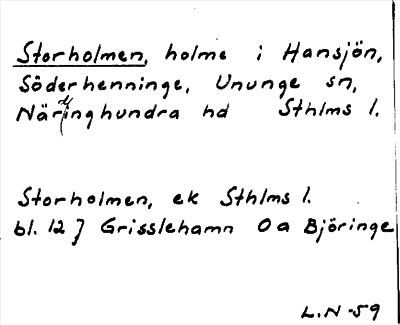 Storholmen, holme i Hansjön,
Söderhenninge, Ununge sn,
Närdinghundra hd Sthlms l.
Storholmen, ek Sthlms l.
bl. 12 J Grisslehamn Oa Björinge
L.N-59